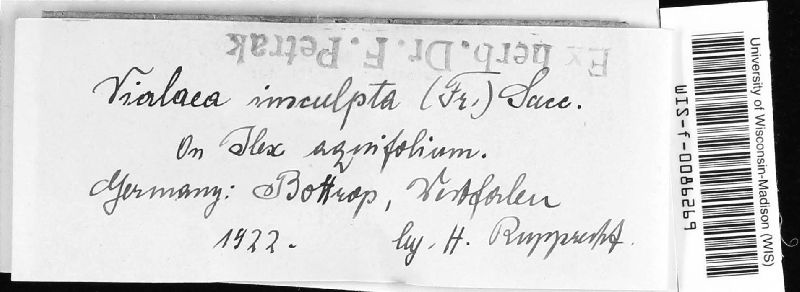 Ex herb. Dr. F. Petrak
Vialaea insculpta (Fr.) Sacc.
On Ilex aquifolium.
Germany: Bottrop, Westfalen
1922. leg. H. Rupprecht.
University of Wisconsin-Madison (WIS)
WIS-f-0086269